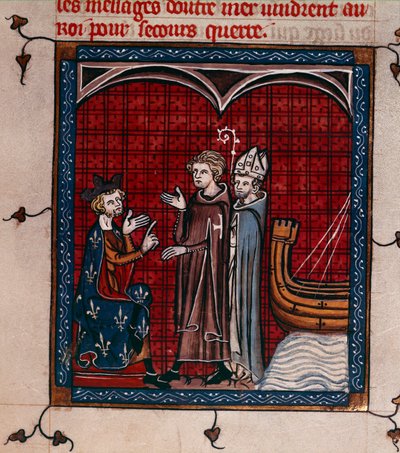 les messages doutre mer uindrent au
Roi pour secours querre.